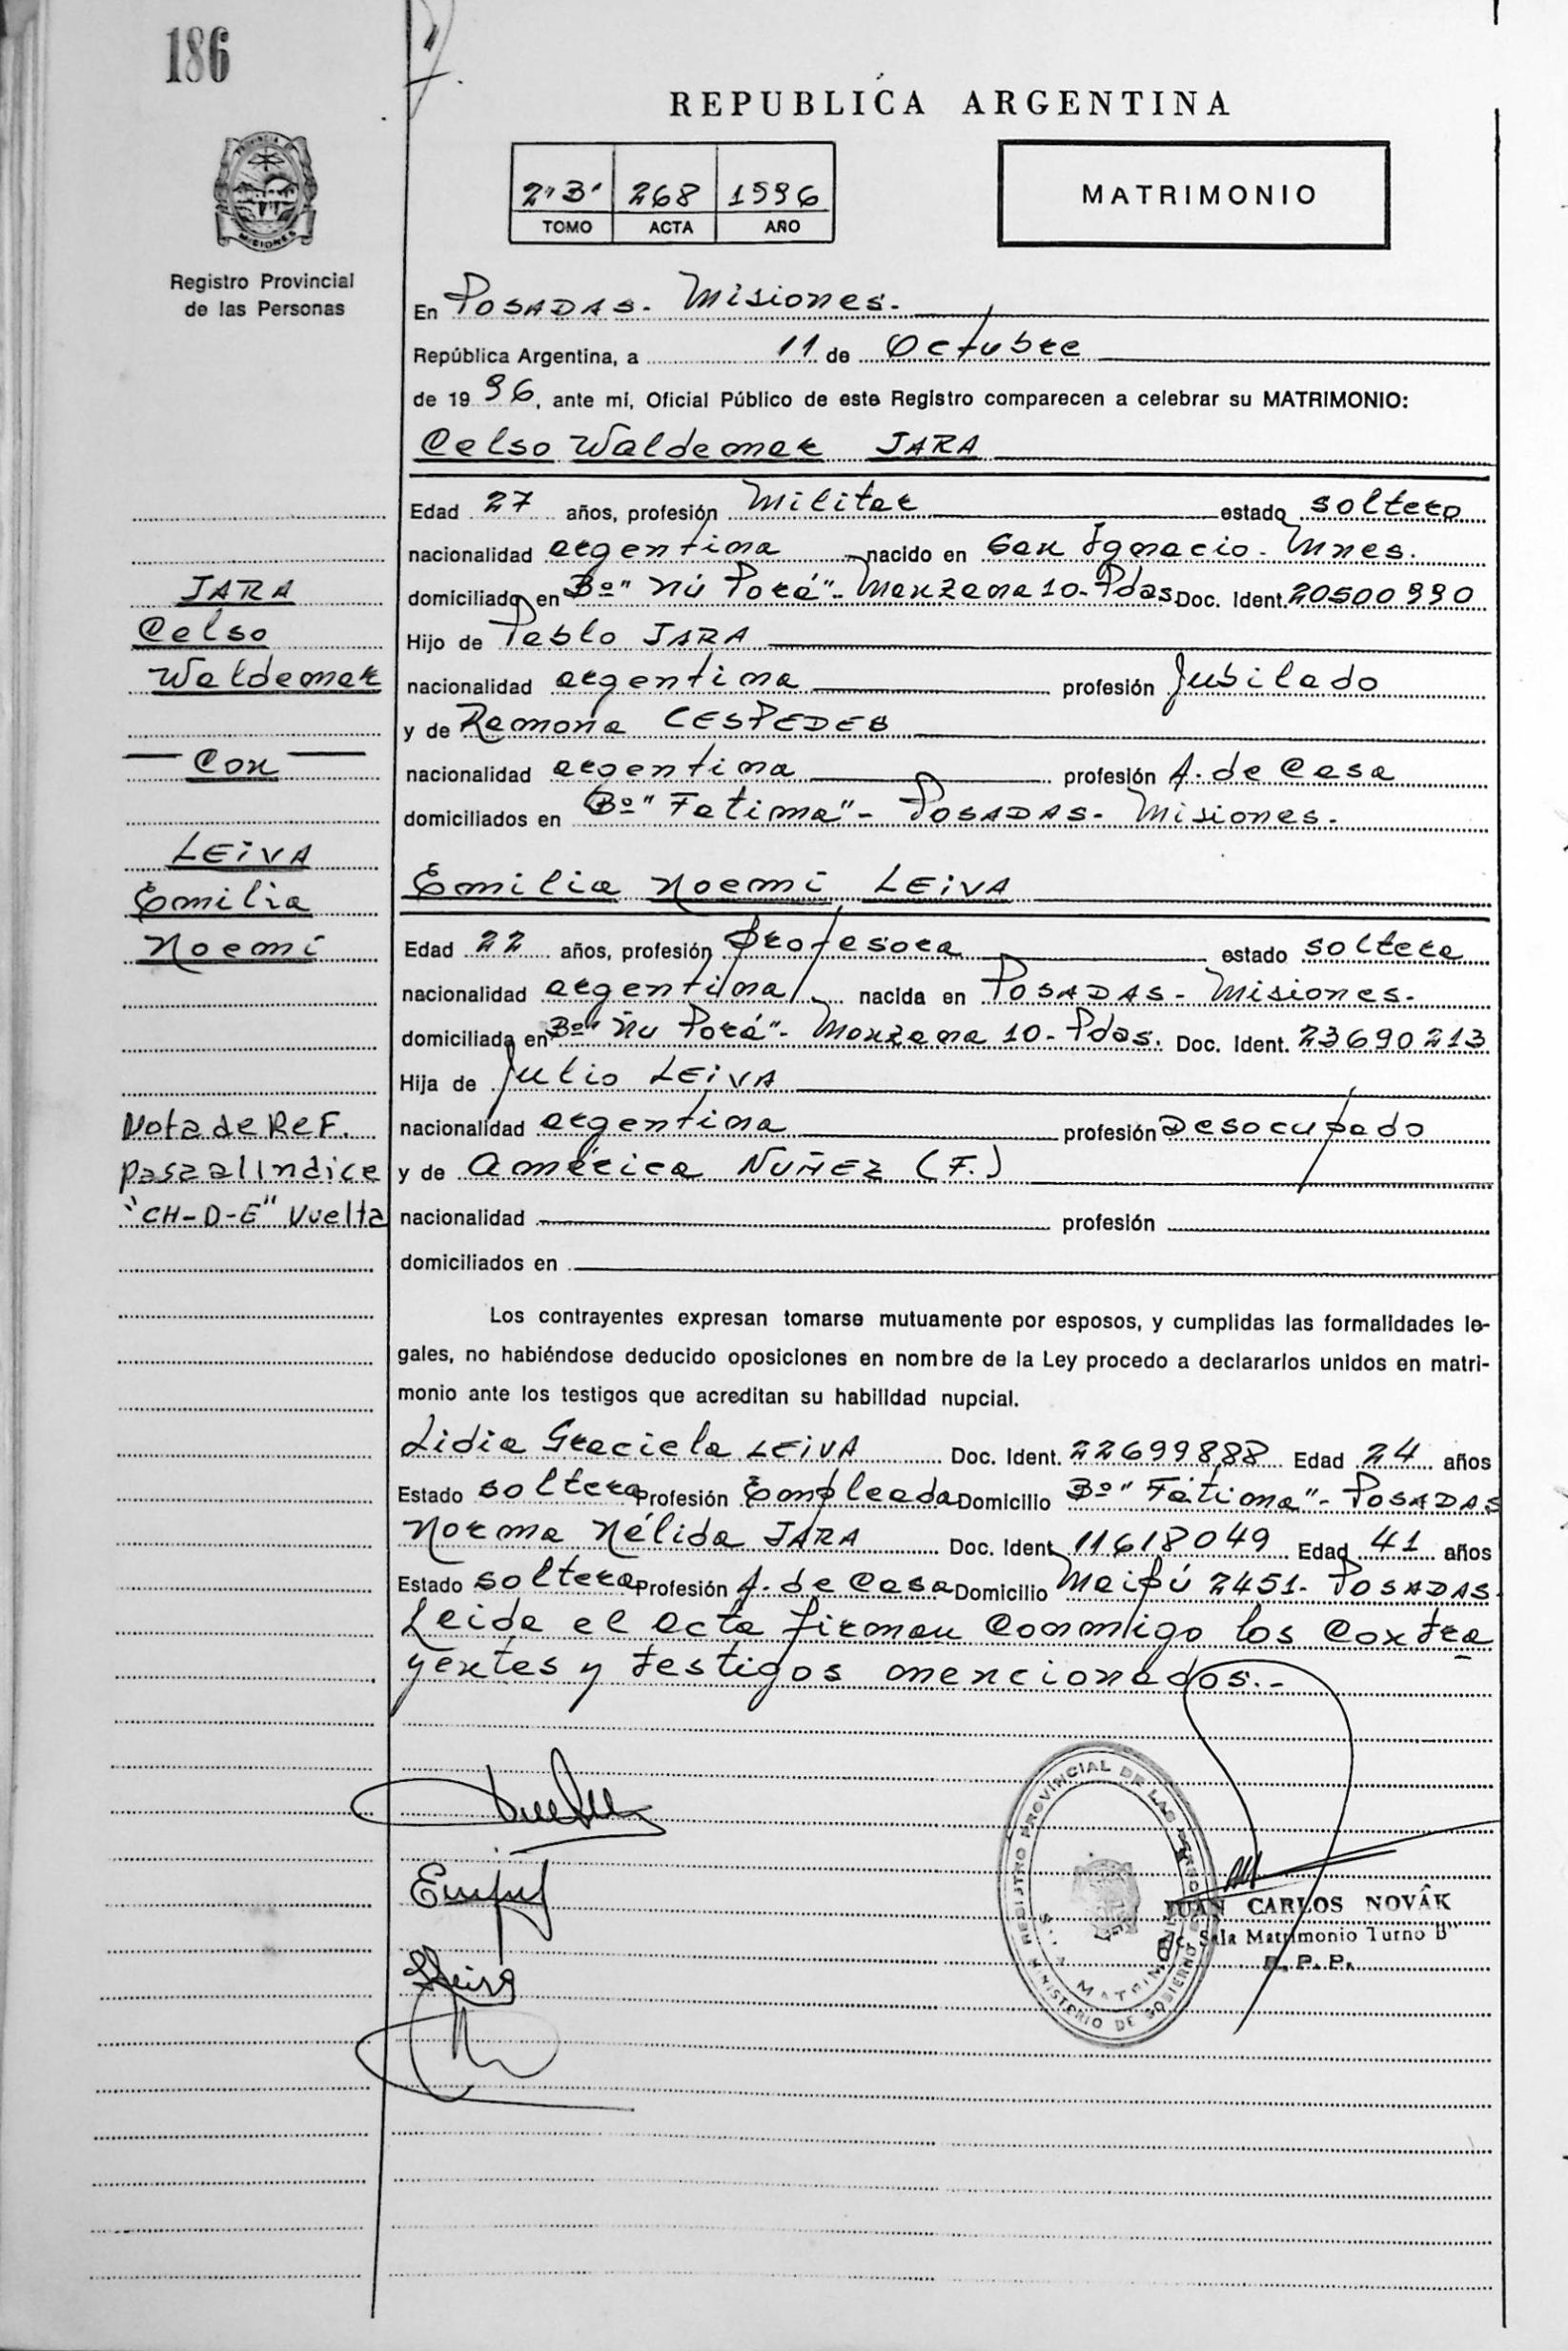 186
REPUBLICA ARGENTINA
2"B" 268 1996
TOMO ACTA AÑO
MATRIMONIO
PROVINCIA DE MISIONES
Registro Provincial
de las Personas
En POSADAS- Misiones.
República Argentina, a 11 de Octubre
de 1996, ante mí, Oficial Público de este Registro comparecen a celebrar su MATRIMONIO:
Celso Waldemar JARA
Edad 27 años, profesión Militar estado soltero
nacionalidad argentina nacido en San Ignacio- Mnes.
domiciliado en Bº "Ñú Porá"- Manzana 10- Pdas Doc. Ident. 20500990
Hijo de Pablo JARA
nacionalidad argentina profesión Jubilado
y de Ramona CESPEDES
nacionalidad argentina profesión A. de Casa
domiciliados en Bº "Fatima"- POSADAS- Misiones.
Emilia Noemí LEIVA
Edad 22 años, profesión profesora estado soltera
nacionalidad argentina nacida en POSADAS- Misiones.
domiciliada en Bº "Ñu Porá"- Manzana 10- Pdas. Doc. Ident. 23690213
Hija de Julio LEIVA
nacionalidad argentina profesión Desocupado
y de América NUÑEZ (F.)
nacionalidad profesión
domiciliados en
JARA
Celso
Waldemar
Con
LEIVA
Emilia
Noemí
Nota de ReF.
pasa al Indice
"CH-D-E" Vuelta
Los contrayentes expresan tomarse mutuamente por esposos, y cumplidas las formalidades le-
gales, no habiéndose deducido oposiciones en nombre de la Ley procedo a declararlos unidos en matri-
monio ante los testigos que acreditan su habilidad nupcial.
Lidia Graciela LEIVA Doc. Ident. 22699888 Edad 24 años
Estado soltera Profesión Empleada Domicilio Bº "Fátima"- POSADAS
Norma Nélida JARA Doc. Ident. 11618049 Edad 41 años
Estado soltera Profesión A. de Casa Domicilio Maipú 2451- POSADAS-
Leida el acta firman conmigo los contra
yentes y testigos mencionados.-
REGISTRO PROVINCIAL DE LAS PERSONAS
MINISTERIO DE GOBIERNO
JUAN CARLOS NOVÂK
Sala Matrimonio Turno B"
R. P. P.